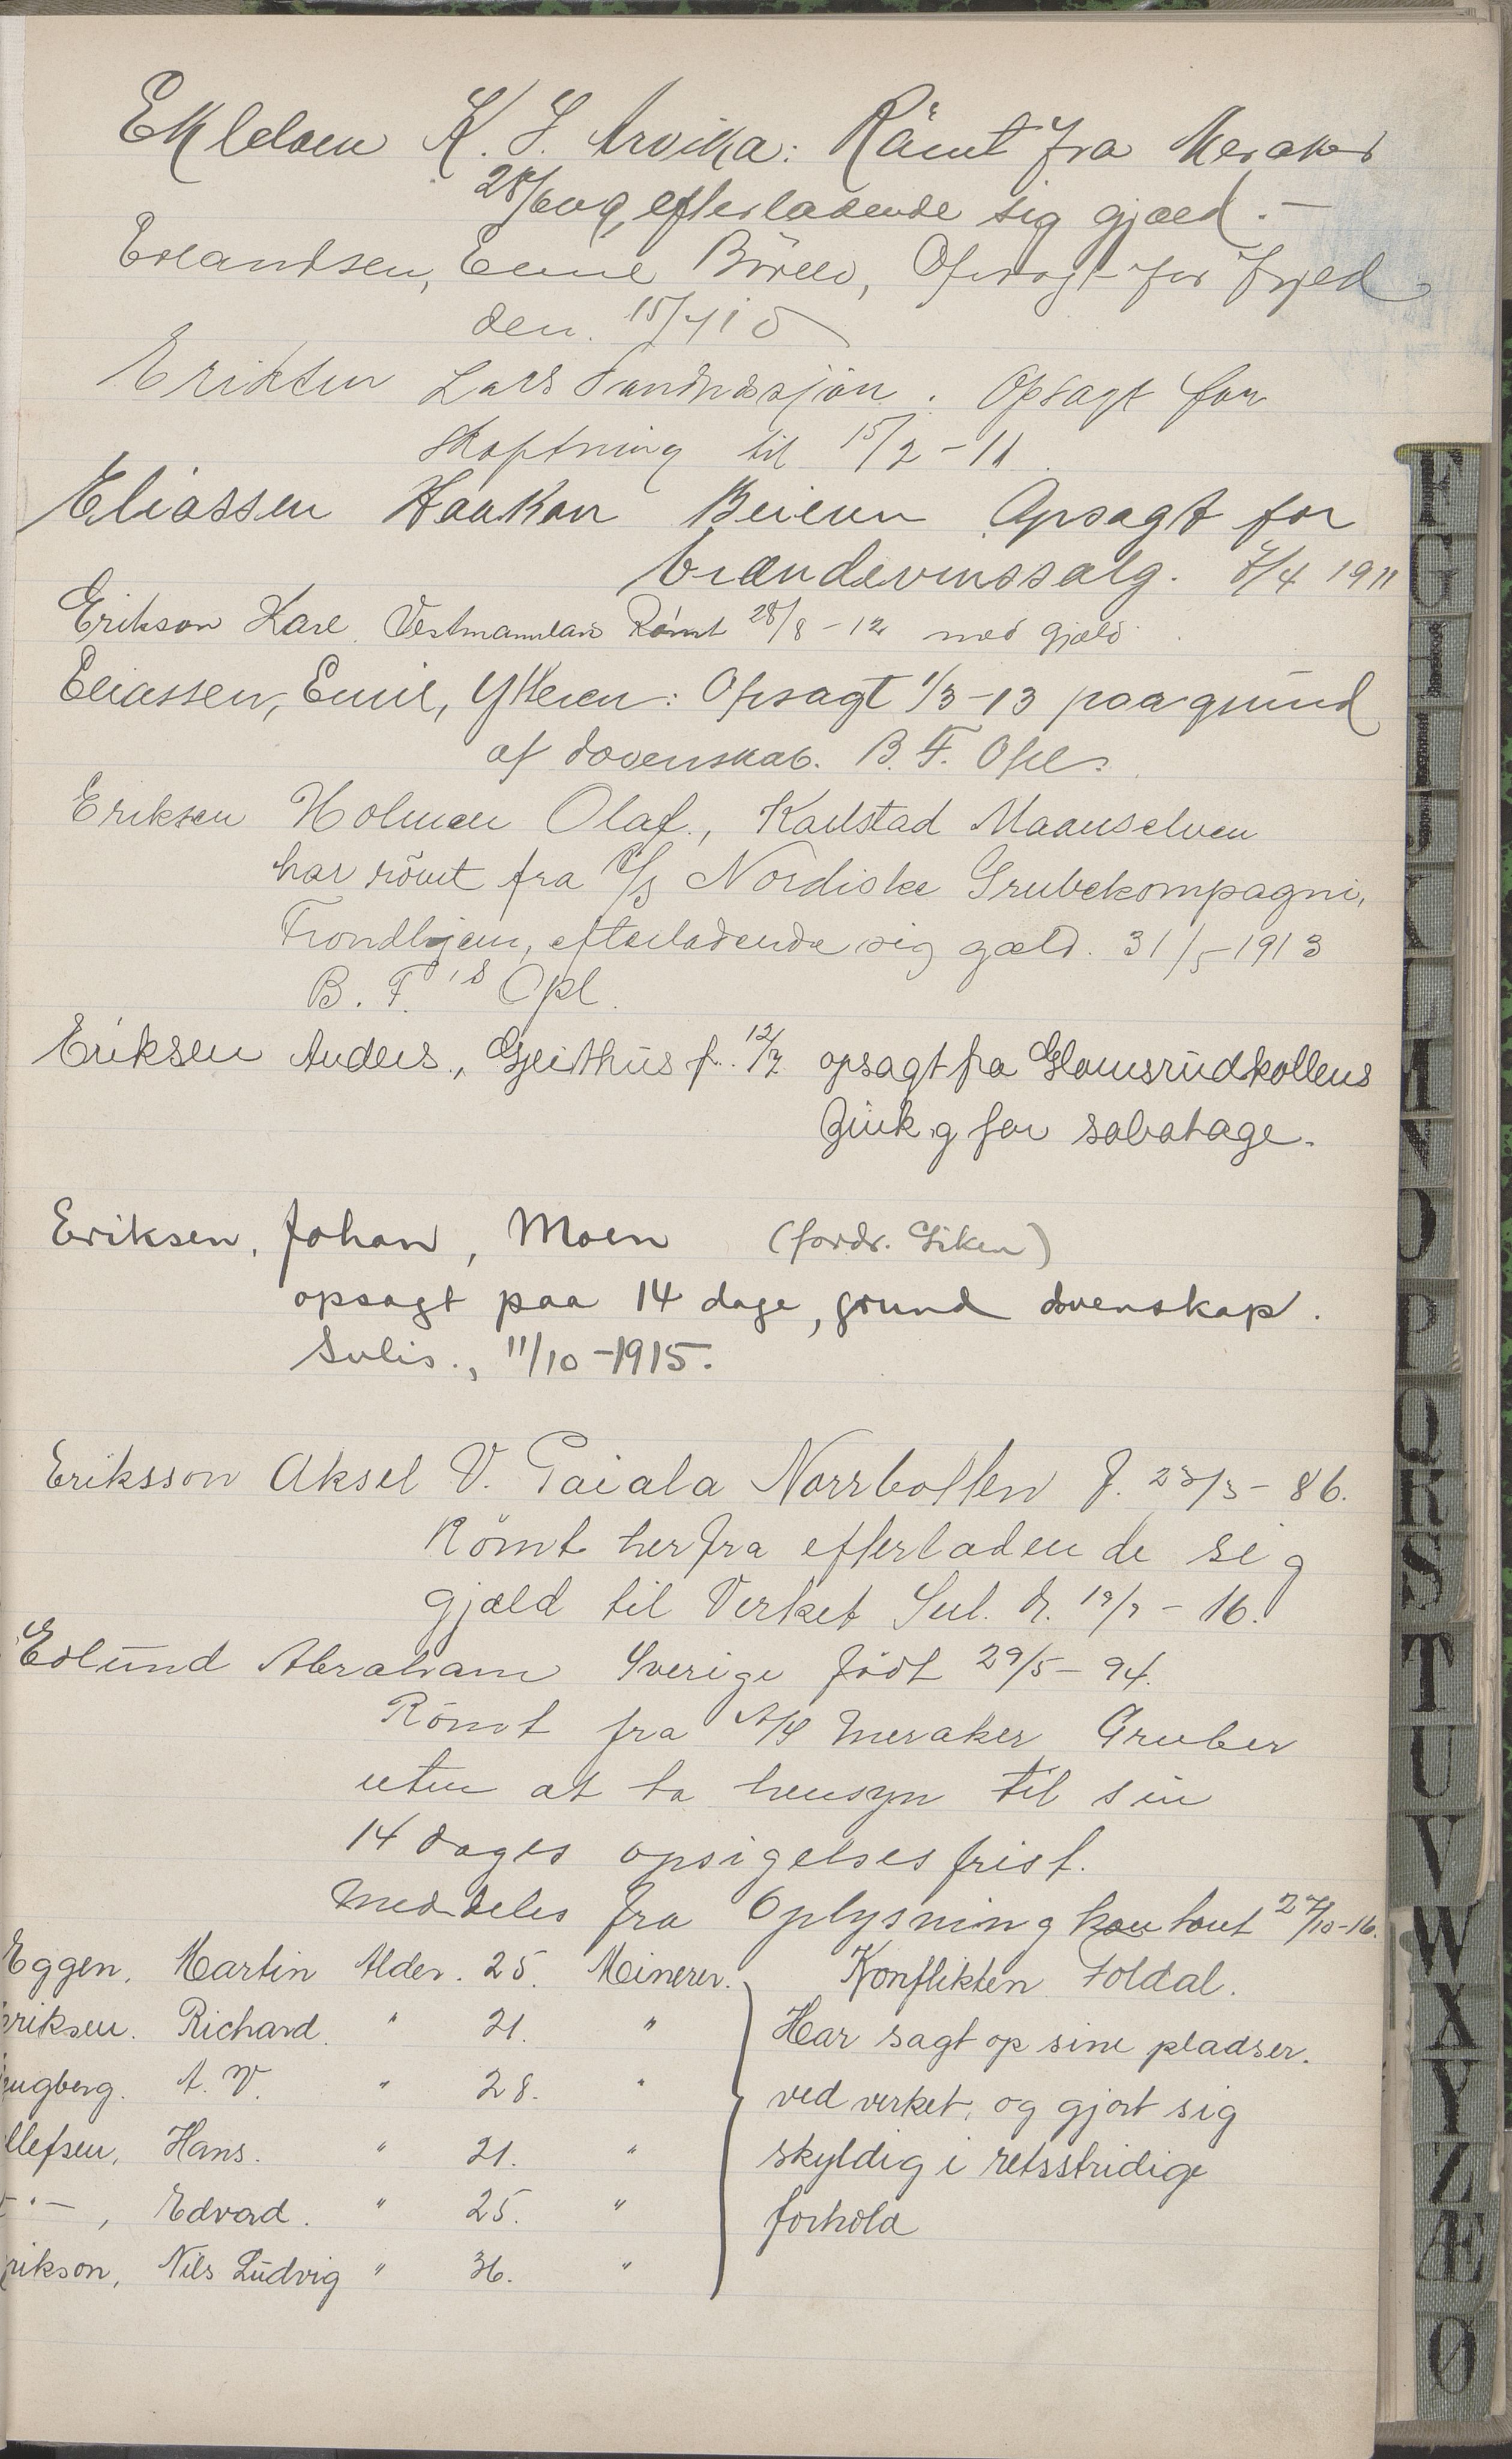 K. J. Arvika: Römt fra Meraker
28/6 09, efterladende sig gjæld. —
Erlandsen, Emil Opsagt for
den. 15/7 10
Eriksen Lars Sandnæssjöen. Opsagt for
Skoftning til 15/2 - 11.
Eliassen Haakon Beieren Opsagt for
brændevinssalg. 7/4 1911
Erikson Karl Vestmanland Römt 28/8 - 12 med gjæld.
Eliassen, Emil, Ytteren: Opsagt 1/3 - 13 paa grund
af dovenskab. B. F. Opl.
Eriksen Holmen Olaf., Karlstad Maanselven
har römt fra A/S Nordiske Grubekompagni,
Trondhjem, efterladende sig gæld. 31/5 - 1913
B. F.'s Opl.
Eriksen Anders., Geithus f. 12/7 opsagt fra Glomsrudkollens
Zink.g for sabotage.
Eriksen, Johan, Moen (fordr. Giken)
opsagt paa 14 dage, grund dovenskap.
Sulis., 11/10 - 1915.
Eriksson Aksel V. Paiala Norrbotten f. 23/3 - 86.
Römt herfra efterladende sig
gjæld til Verket Sul. d. 19/9 - 16.
Edlund Abraham Sverige födt 29/5 - 94.
Römt fra A/S Meraker Gruber
uten at ta hensyn til sin
14 dages opsigelsesfrist.
Meddeles fra Oplysningskontoret 27/10 - 16.
Eggen, Martin Alder. 25. Minerer. Konflikten Foldal.
Eriksen. Richard. " 21. " Har sagt op sine pladser.
A. V. " 28. " ved verket, og gjort sig
Ellefsen, Hans. " 21. " skyldig i retsstridige
— " —, Edvard. " 25. " forhold
Erikson, Nils Ludvig " 36. "
F
G
H
I
J
K
L
M
N
O
P
Q
R
S
T
U
V
W
X
Y
Z
Æ
Ø